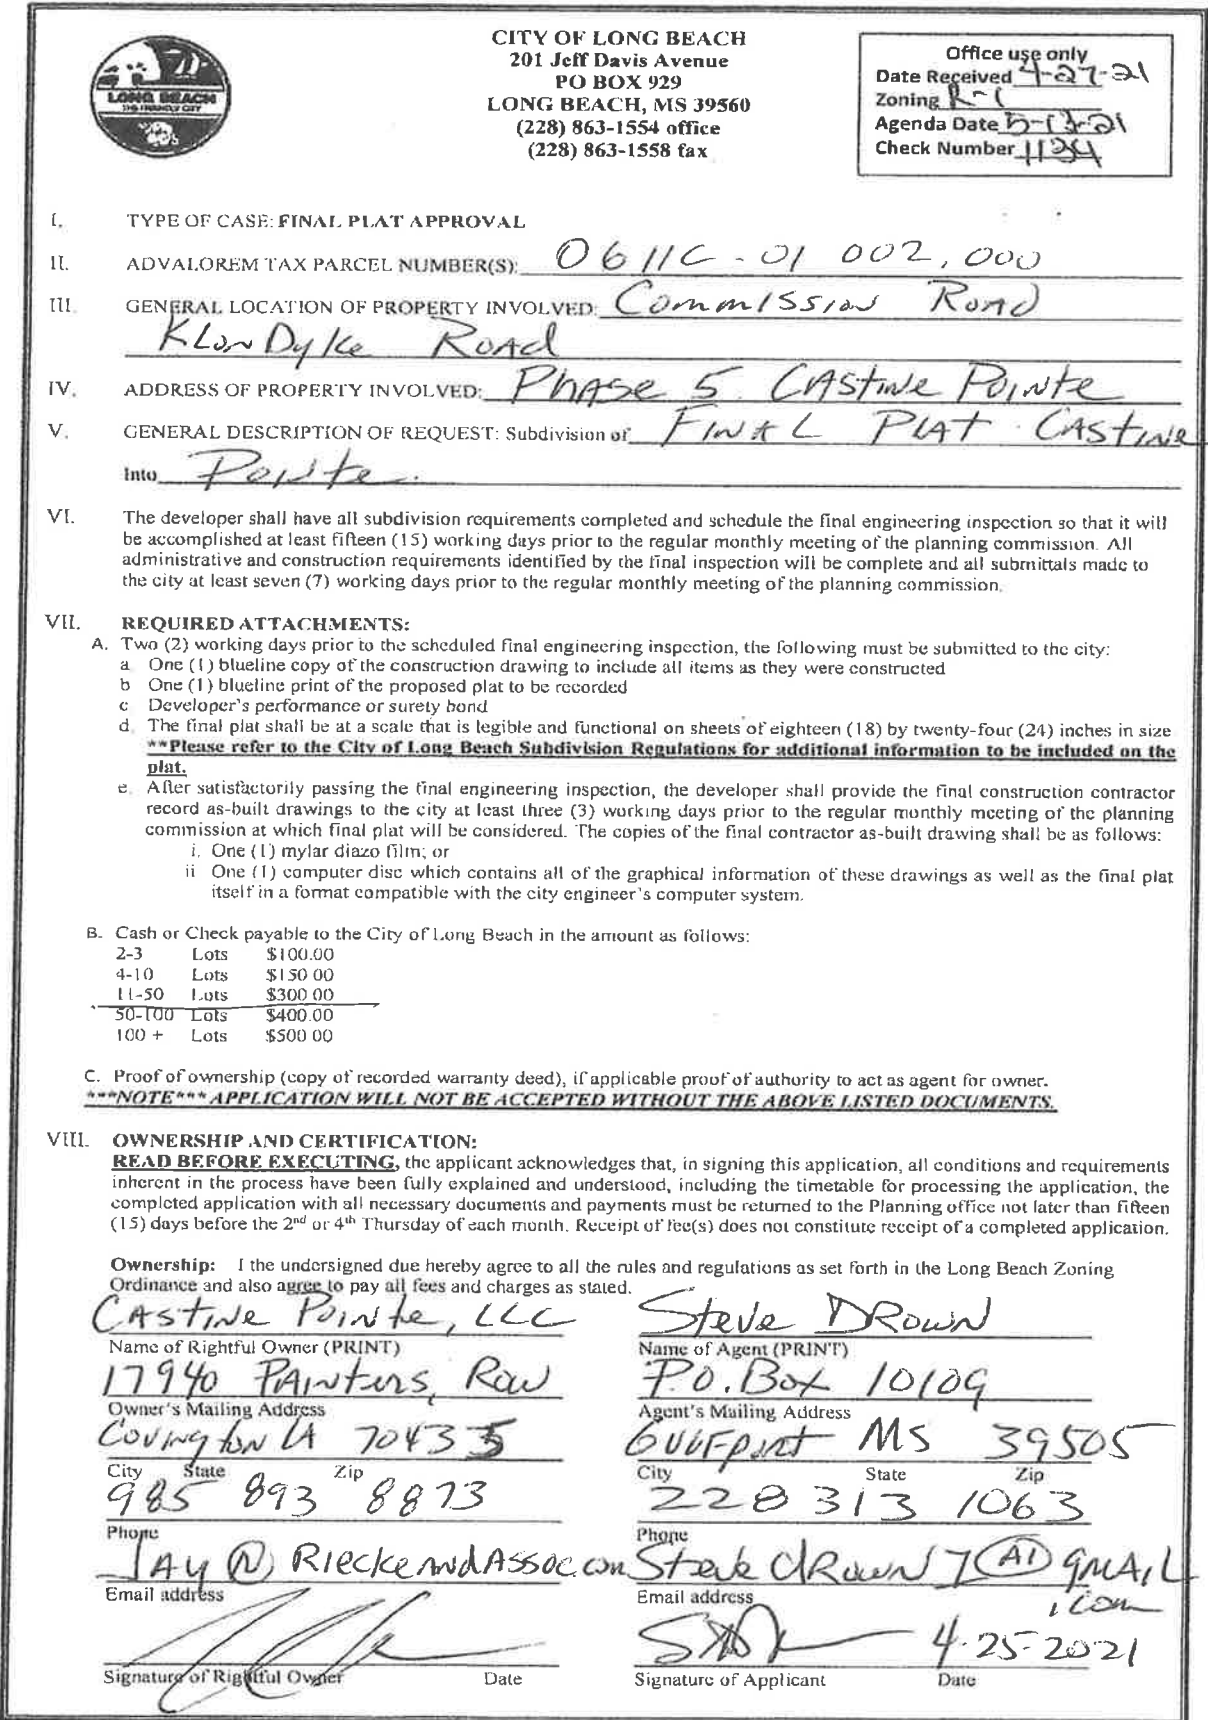 LONG BEACH
THE FRIENDLY CITY
CITY OF LONG BEACH
201 Jeff Davis Avenue
PO BOX 929
LONG BEACH, MS 39560
(228) 863-1554 office
(228) 863-1558 fax
Office use only
Date Received 4-27-21
Zoning R-1
Agenda Date 5-13-21
Check Number 1134
I. TYPE OF CASE: FINAL PLAT APPROVAL
II. ADVALOREM TAX PARCEL NUMBER(S): 0611C-01 002,000
III. GENERAL LOCATION OF PROPERTY INVOLVED: Commission Road
KLonDyke Road
IV. ADDRESS OF PROPERTY INVOLVED: Phase 5 Castine Pointe
V. GENERAL DESCRIPTION OF REQUEST: Subdivision of Final Plat Castine
Into Pointe.
VI. The developer shall have all subdivision requirements completed and schedule the final engineering inspection so that it will
be accomplished at least fifteen (15) working days prior to the regular monthly meeting of the planning commission. All
administrative and construction requirements identified by the final inspection will be complete and all submittals made to
the city at least seven (7) working days prior to the regular monthly meeting of the planning commission.
VII. REQUIRED ATTACHMENTS:
A. Two (2) working days prior to the scheduled final engineering inspection, the following must be submitted to the city:
a One (1) blueline copy of the construction drawing to include all items as they were constructed
b One (1) blueline print of the proposed plat to be recorded
c Developer's performance or surety bond
d. The final plat shall be at a scale that is legible and functional on sheets of eighteen (18) by twenty-four (24) inches in size
**Please refer to the City of Long Beach Subdivision Regulations for additional information to be included on the
plat.
e. After satisfactorily passing the final engineering inspection, the developer shall provide the final construction contractor
record as-built drawings to the city at least three (3) working days prior to the regular monthly meeting of the planning
commission at which final plat will be considered. The copies of the final contractor as-built drawing shall be as follows:
i. One (1) mylar diazo film; or
ii One (1) computer disc which contains all of the graphical information of these drawings as well as the final plat
itself in a format compatible with the city engineer's computer system.
B. Cash or Check payable to the City of Long Beach in the amount as follows:
2-3 Lots $100.00
4-10 Lots $150 00
11-50 Lots $300 00
50-100 Lots $400.00
100 + Lots $500 00
C. Proof of ownership (copy of recorded warranty deed), if applicable proof of authority to act as agent for owner.
***NOTE*** APPLICATION WILL NOT BE ACCEPTED WITHOUT THE ABOVE LISTED DOCUMENTS.
VIII. OWNERSHIP AND CERTIFICATION:
READ BEFORE EXECUTING, the applicant acknowledges that, in signing this application, all conditions and requirements
inherent in the process have been fully explained and understood, including the timetable for processing the application, the
completed application with all necessary documents and payments must be returned to the Planning office not later than fifteen
(15) days before the 2nd or 4th Thursday of each month. Receipt of fee(s) does not constitute receipt of a completed application.
Ownership: I the undersigned due hereby agree to all the rules and regulations as set forth in the Long Beach Zoning
Ordinance and also agree to pay all fees and charges as stated.
Castine Pointe, LLC Steve Drown
Name of Rightful Owner (PRINT) Name of Agent (PRINT)
17940 Painters Row P.O. Box 10109
Owner's Mailing Address Agent's Mailing Address
Covington LA 70435 Gulfport MS 39505
City State Zip City State Zip
985 893 8873 228 313 1063
Phone Phone
Jay @ RieckeandAssoc.com Steve drown 7 (AT) gmail
.com
Email address Email address
4-25-2021
Signature of Rightful Owner Date Signature of Applicant Date